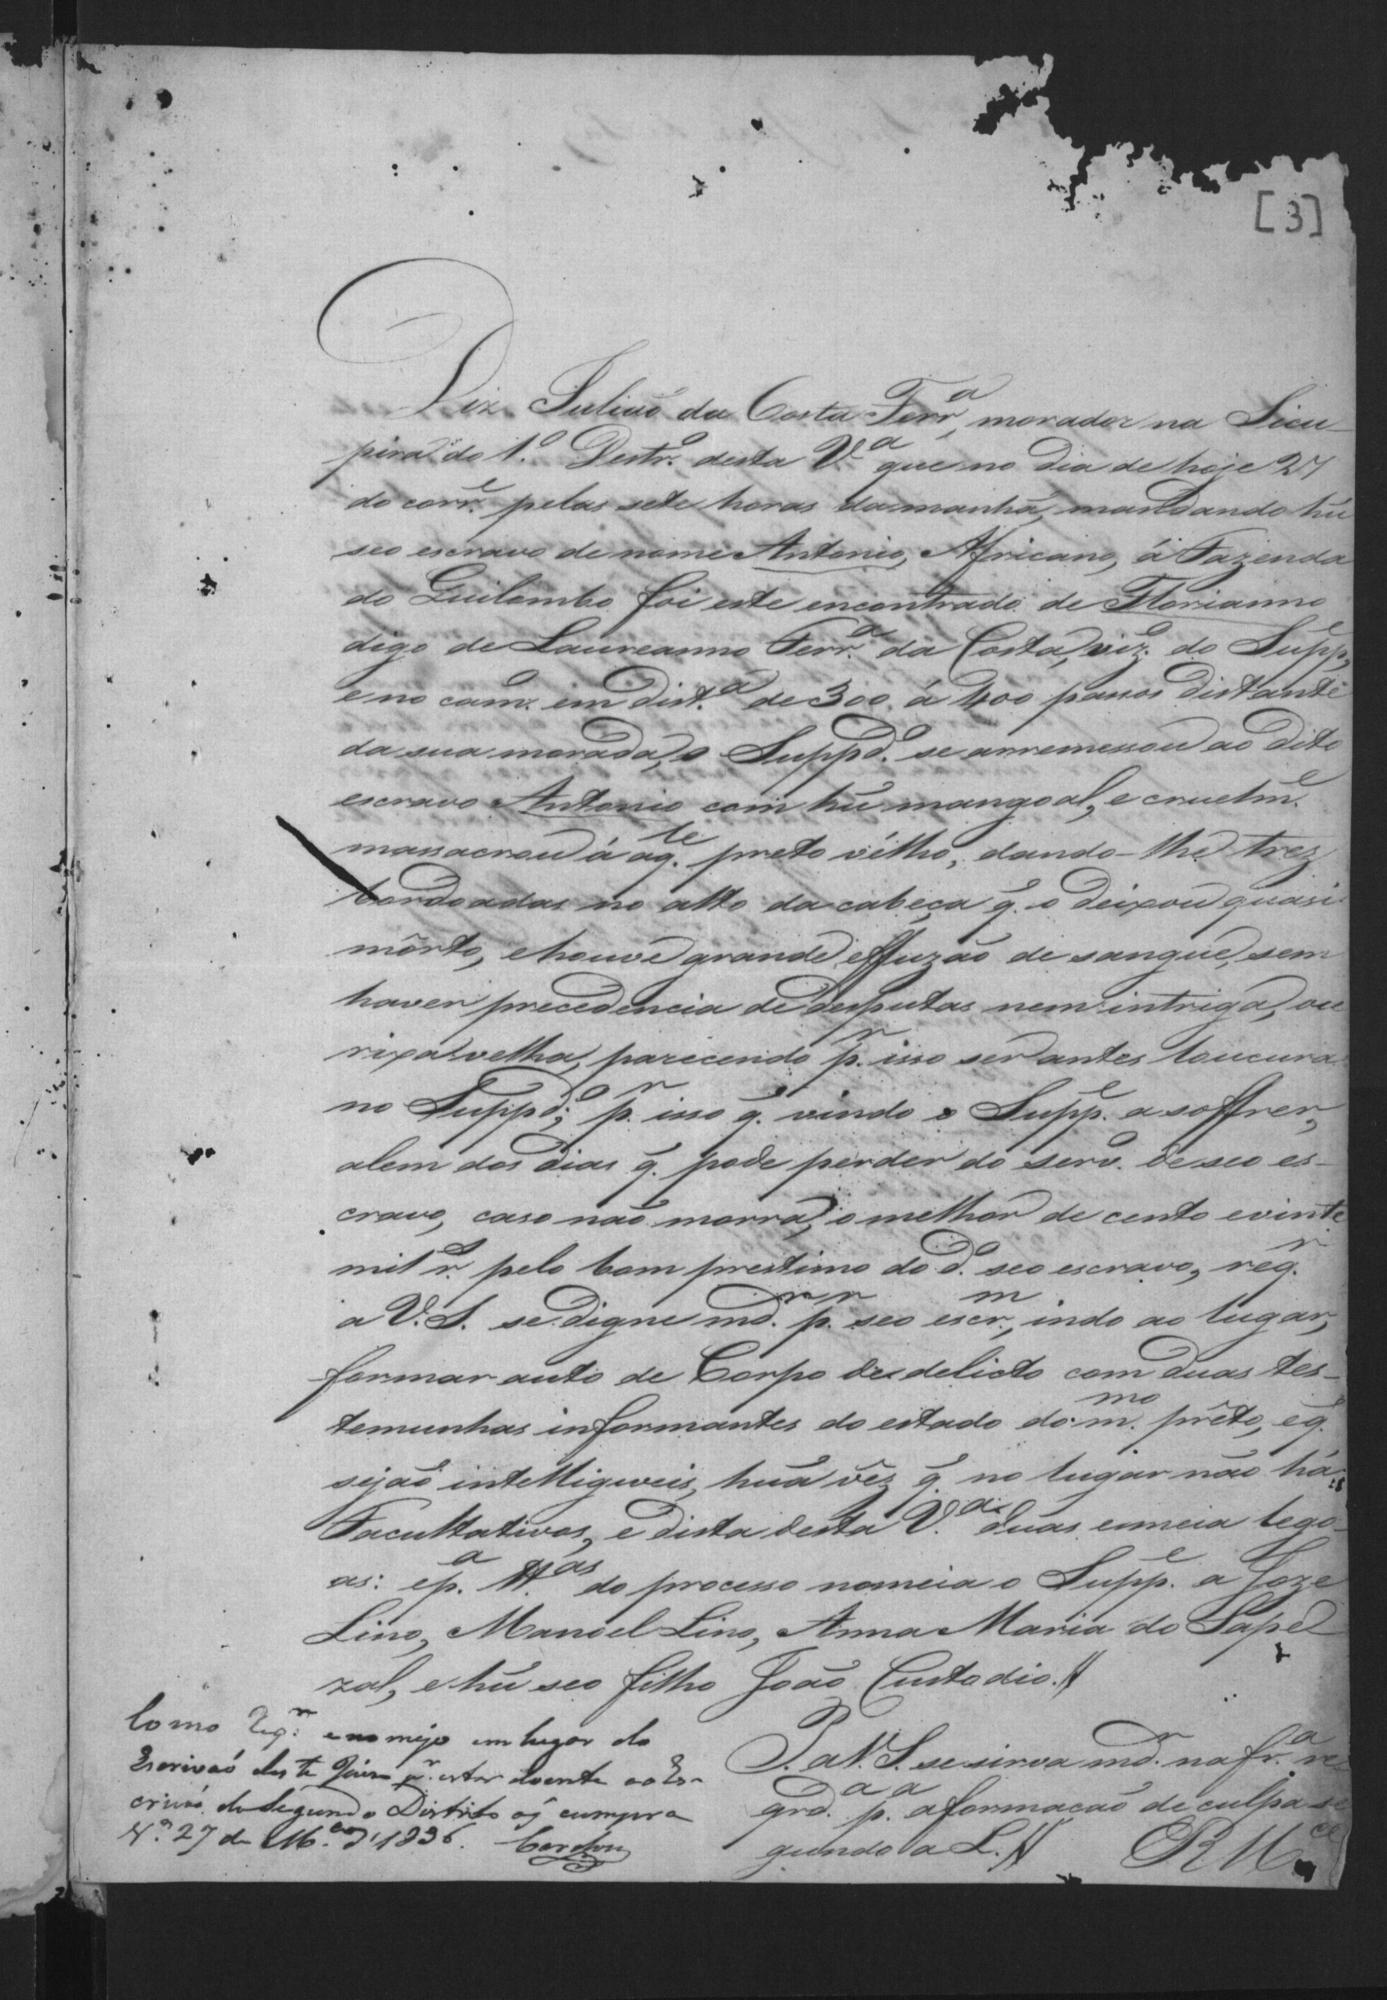 [3]
Diz Julião da Costa Ferrª, morador na Sicu-
pira do 1.º Destr.º desta Vª que no dia de hoje 27
do corr.e pelas sete horas da manhã, mandando hũ
seo escravo de nome Antonio, Africano, á Fazenda
do Quilombo foi este encontrado de Florianno
digo de Laureanno Ferr.ª da Costa, viz.º do Supp.e,
e no cam.º em dist.ª de 300 á 400 passos distante
da sua morada, o Suppd.º se arremessou ao dito
escravo Antonio com hũ mangoal, e cruelm.e
massacrou á aq.le preto vélho, dando-lhe trez
bordoadas no alto da cabeça q̃ o deixou quasi
môrto, e houve grande effuzão de sangue, sem
haver precedencia de desputas nem intriga, ou
rixa velha, parecendo p.r isso ser antes loucura
no Suppd.º; p.r isso q̃ vindo o Supp.e a soffrer,
alem dos dias q̃ pode perder do serv.º de seo es-
cravo, caso não morra, o melhor de cento e vinte
mil r.s pelo bom prestimo do d.º seo escravo, req.r
a V.S. se digne md.r p.r seo escr.m, indo ao lugar,
formar auto de Corpo de delicto com duas tes-
temunhas informantes do estado do m.mo prêto, e q̃
sejão intelligiveis, huã vêz q̃ no lugar não há
Facultativos, e dista desta V.ª duas e meia lego-
as: e p.ª tt.as do processo nomeia o Supp.e a Joze
Lino, Manoel Lino, Anna Maria do Sape-
zal, e hũ seo filho João Custodio.//
P. a V. S. se sirva md.r na fr.ª re-
qrd.ª p.ª a formacão de culpa se-
gundo a L.//
E R M.ce
Como req.r e nomeio em lugar do
Escrivaõ deste Juizo p.r estar doente ao Es-
crivaõ do Segundo Distrito q̃ cumpra
V.ª 27 de M.ço d' 1836. Cardozo